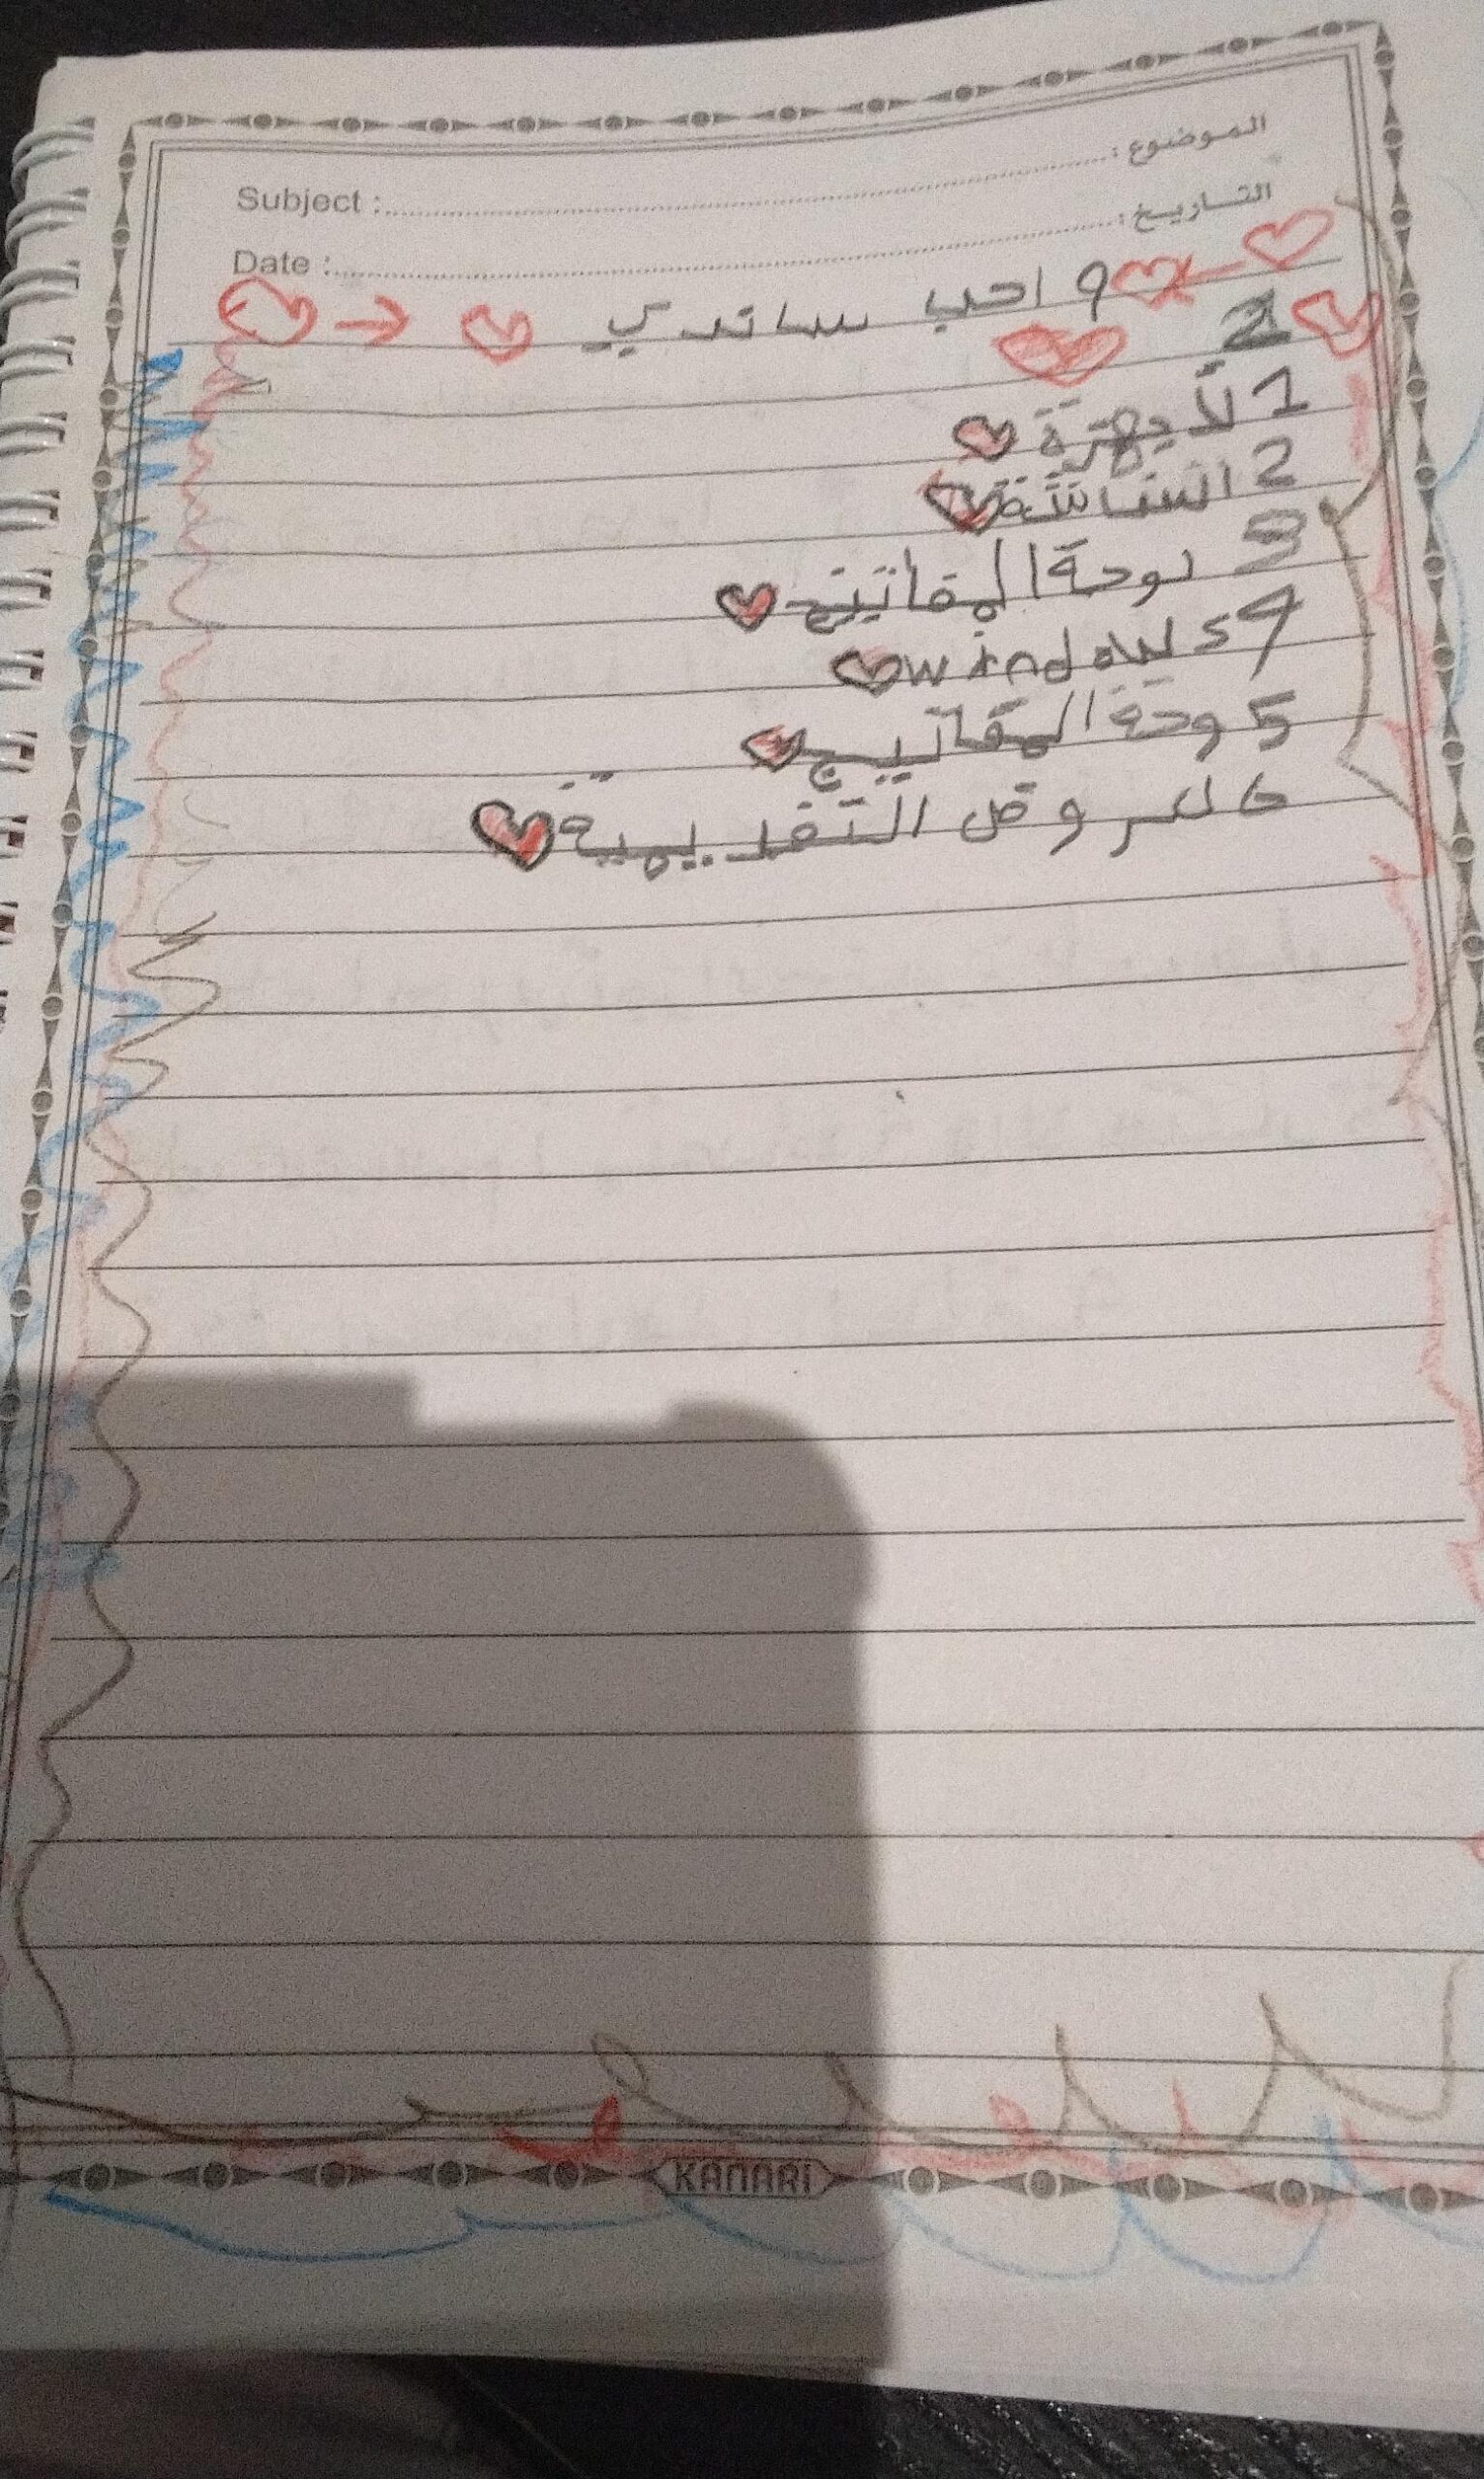 الموضوع :
Subject :
التاريخ :
Date :
9 احب ساندي
2
1 لأ يهزة
2 الشاشة
3 لوحة المفاتيح
4 windows
5 وحة المفاتيح
العروض التقديمية
KANARI